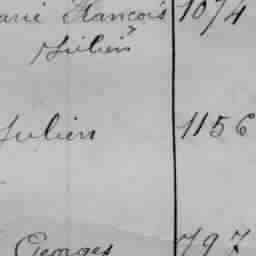 François 1074
Julien
Julien 1156
Georges 797